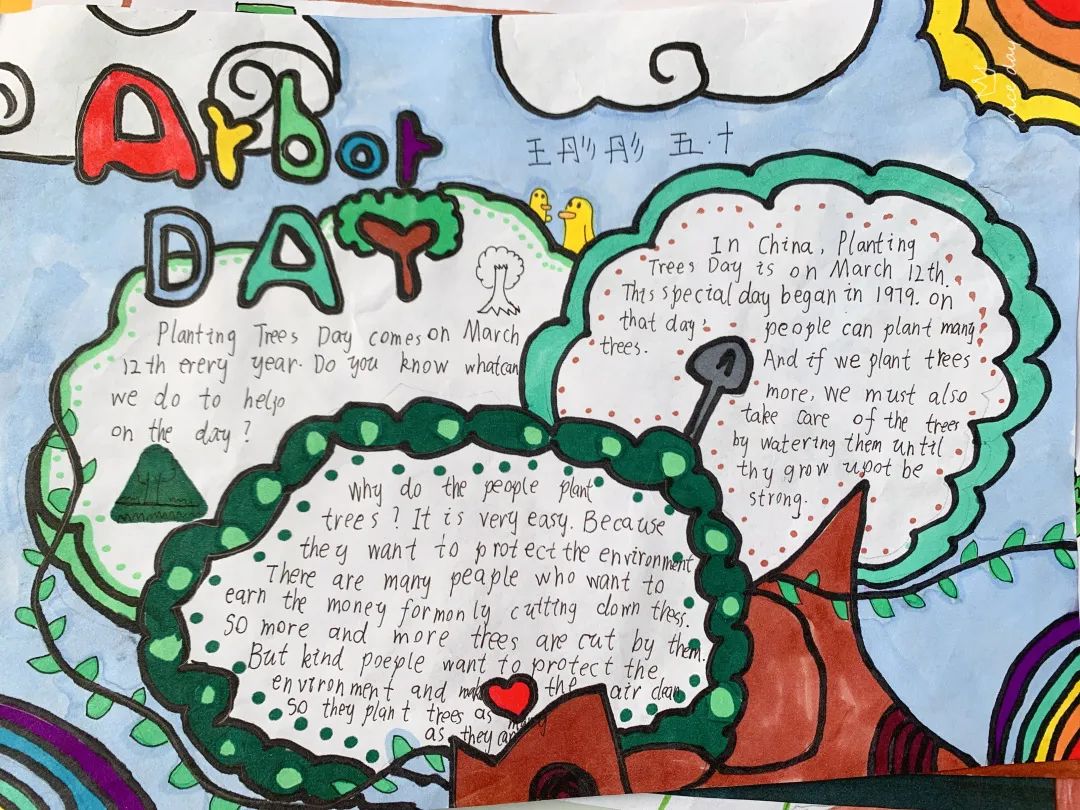 Arbor
DAY
王彤彤 五·十
nice day
Planting Trees Day comes on March
12th erery year. Do you know whatcan
we do to help
on the day?
In China, Planting
Trees Day is on March 12th.
This special day began in 1979. on
that day, people can plant many
trees.
And if we plant trees
more, we must also
take care of the trees
by watering them until
thy grow upot be
strong.
Why do the people plant
trees? It is very easy. Because
they want to protect the environment
There are many peaple who want to
earn the money formonly cutting down thess.
SO more and more trees are cut by them.
But kind poeple want to protect the
environment and make the air clean
SO they plant trees as many
as they can